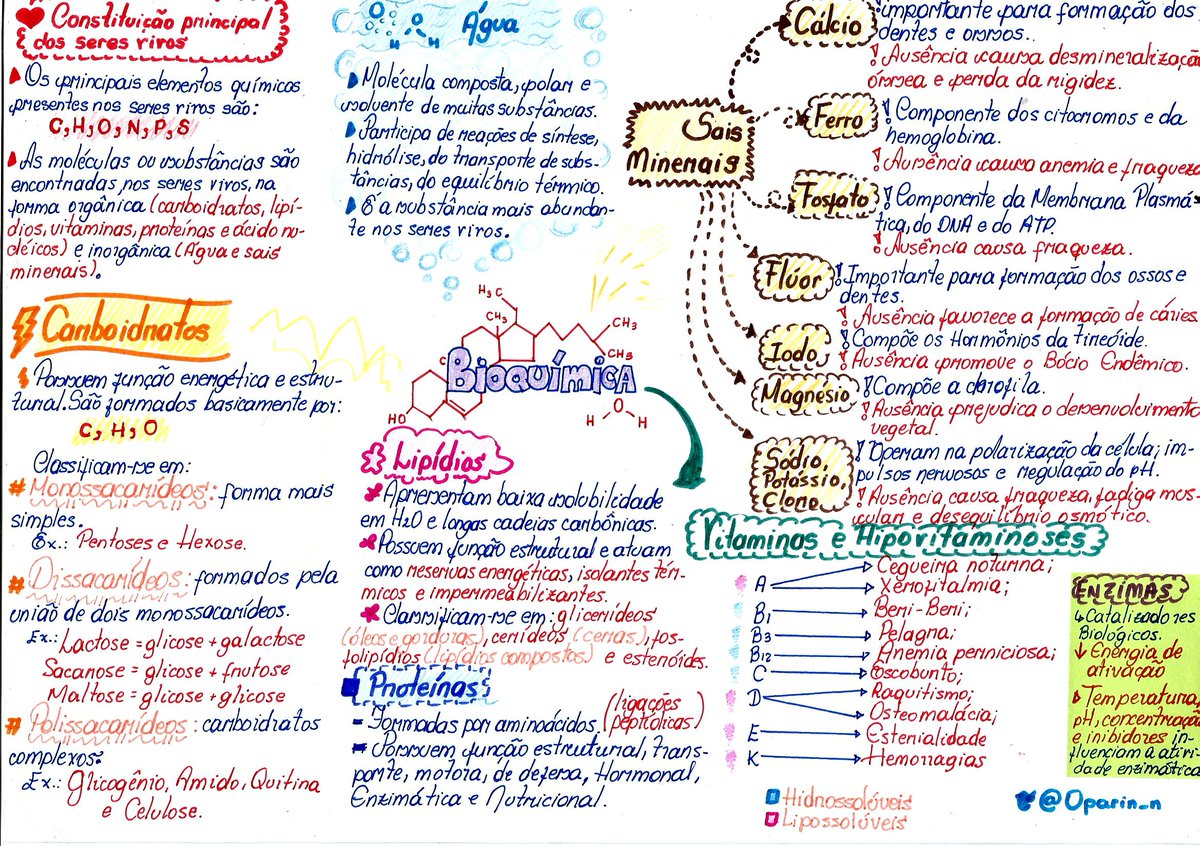 Constituição principal
dos seres vivos
Os principais elementos químicos
presentes nos seres vivos são:
C, H, O, N, P, S
As moléculas ou substâncias são
encontradas nos seres vivos, na
forma orgânica (carboidratos, lipí-
dios, vitaminas, proteínas e ácido nu-
cléicos) e inorgânica (Água e sais
minerais).
Carboidratos
Possuem função energética e estru-
tural. São formados basicamente por:
C, H, O
Classificam-se em:
# Monossacarídeos: forma mais
simples.
Ex.: Pentoses e Hexose.
# Dissacarídeos: formados pela
união de dois monossacarídeos.
Ex.: Lactose = glicose + galactose
Sacarose = glicose + frutose
Maltose = glicose + glicose
# Polissacarídeos: carboidratos
complexos:
Ex.: Glicogênio, Amido, Quitina
e Celulose.
Água
Molécula composta, polar e
solvente de muitas substâncias.
Participa de reações de síntese,
hidrólise, do transporte de subs-
tâncias, do equilíbrio térmico.
É a substância mais abundan-
te nos seres vivos.
H₃C
CH₃
CH₃
CH₃
C
HO
Bioquímica
O
H H
Lipídios
Apresentam baixa solubilidade
em H2O e longas cadeias carbônicas.
Possuem função estrutural e atuam
como reservas energéticas, isolantes tér-
micos e impermeabilizantes.
Classificam-se em: glicerídeos
(óleos e gorduras), cerídeos (ceras), fos-
folipídios (lipídios compostos) e esteróides.
Proteínas
- Formadas por aminoácidos. (ligações
peptídicas)
- Possuem função estrutural, trans-
porte, motora, de defesa, Hormonal,
Enzimática e Nutricional.
Sais
Minerais
Cálcio
importante para formação dos
dentes e ossos.
! Ausência causa desmineralização
óssea e perda da rigidez.
Ferro
! Componente dos citocromos e da
hemoglobina.
! Ausência causa anemia e fraqueza
Fosfato
! Componente da Membrana Plasmá-
tica, do DNA e do ATP.
! Ausência causa fraqueza.
Flúor
! Importante para formação dos ossos e
dentes.
! Ausência favorece a formação de cáries.
Iodo
! Compõe os Hormônios da tireóide.
! Ausência promove o Bócio Endêmico.
Magnésio
! Compõe a clorofila.
! Ausência prejudica o desenvolvimento
vegetal.
Sódio,
Potássio,
Cloro
! Operam na polarização da célula; im-
pulsos nervosos e regulação do pH.
! Ausência causa fraqueza, fadiga mus-
cular e desequilíbrio osmótico.
Vitaminas e Hipovitaminoses
A
Cegueira noturna;
Xeroftalmia;
B1 Beri-Beri;
B3 Pelagra;
B12 Anemia perniciosa;
C Escorbuto;
D
Raquitismo;
Osteomalácia;
E Esterialidade
K Hemorragias
Hidrossolúveis
Lipossolúveis
ENZIMAS
Catalizadores
Biológicos.
↓ Energia de
ativação
Temperatura,
pH, concentração
e inibidores in-
fluenciam a ativi-
dade enzimática
@Oparin_n